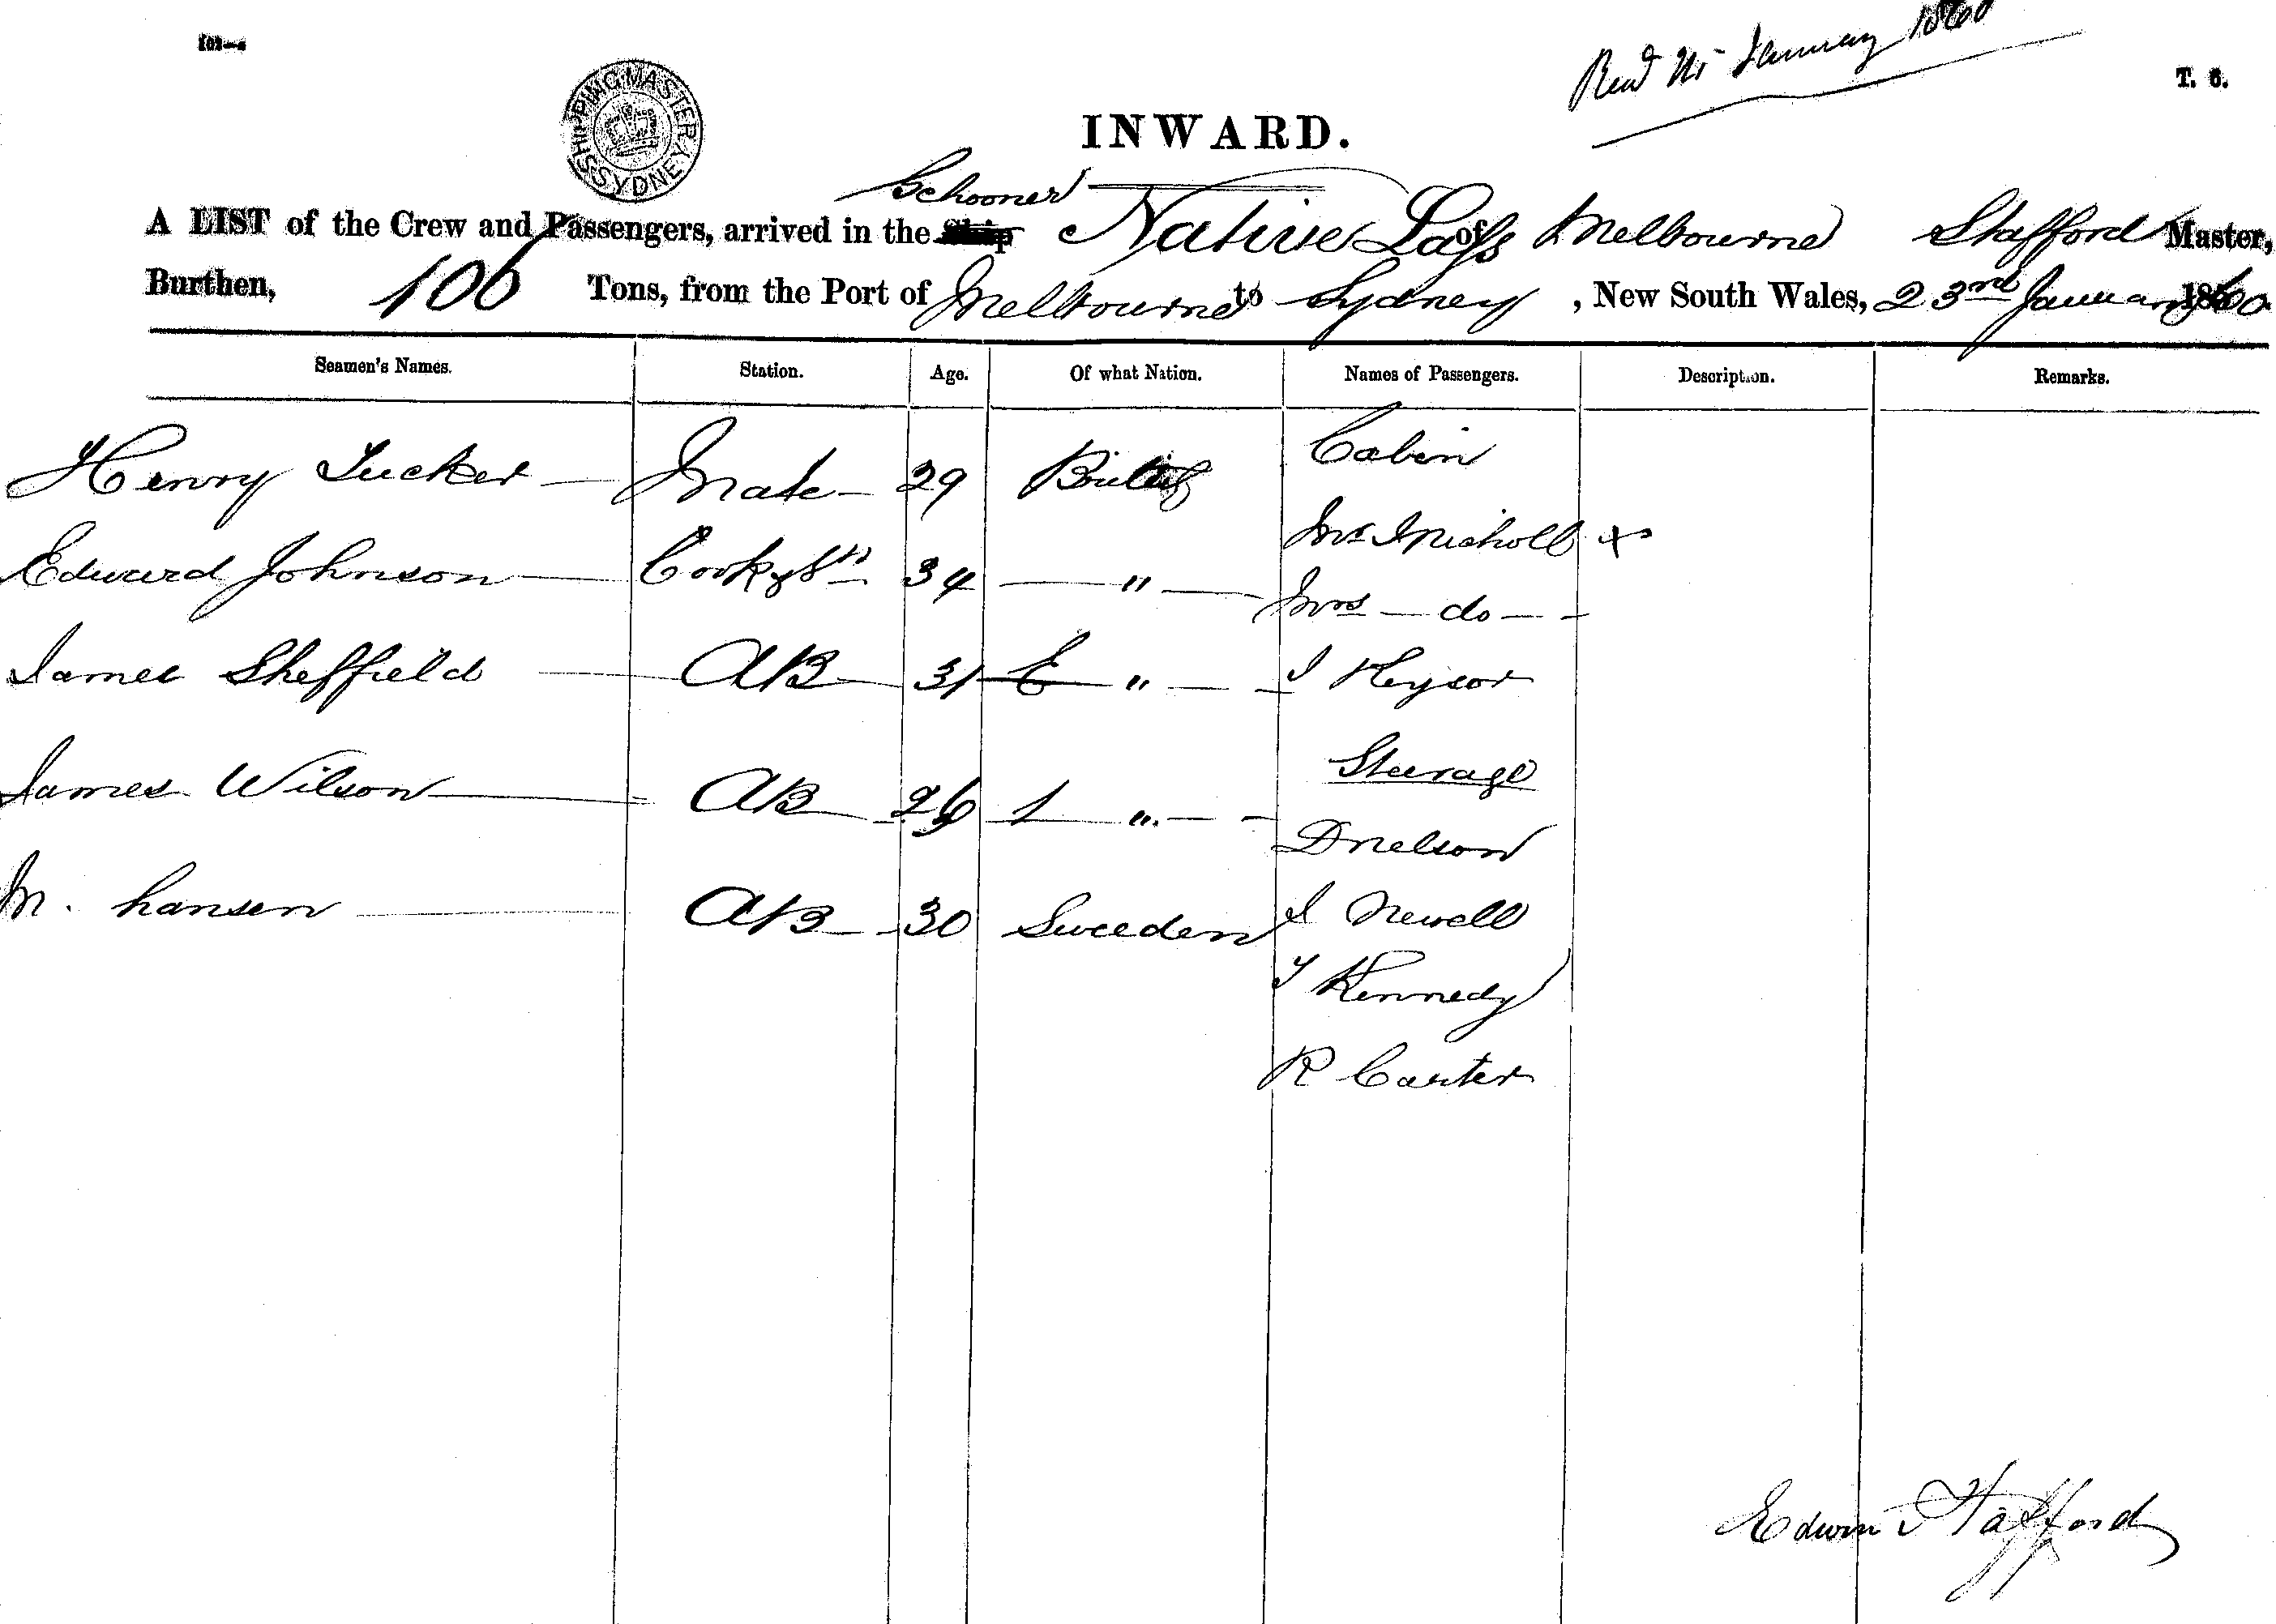 Recd 24 January 1860
T. 6.
SHIPPING MASTER SYDNEY
INWARD.
Schooner
A LIST of the Crew and Passengers, arrived in the Ship Native Lass of Melbourne Stafford Master,
Burthen, 106 Tons, from the Port of Melbourne to Sydney, New South Wales, 23rd January 1860
Seamen's Names. Station. Age. Of what Nation. Names of Passengers. Description. Remarks.
Cabin
Henry Tucker Mate 29 British
Mr Nicholl x
Edward Johnson Cook & St 34 "
Mrs do
James Sheffield AB 31 E " J Keysor
Steerage
James Wilson AB 26 "
D Nelson
M. hansen AB 30 Sweeden J Newell
T Kennedy
R Carter
Edwin Stafford